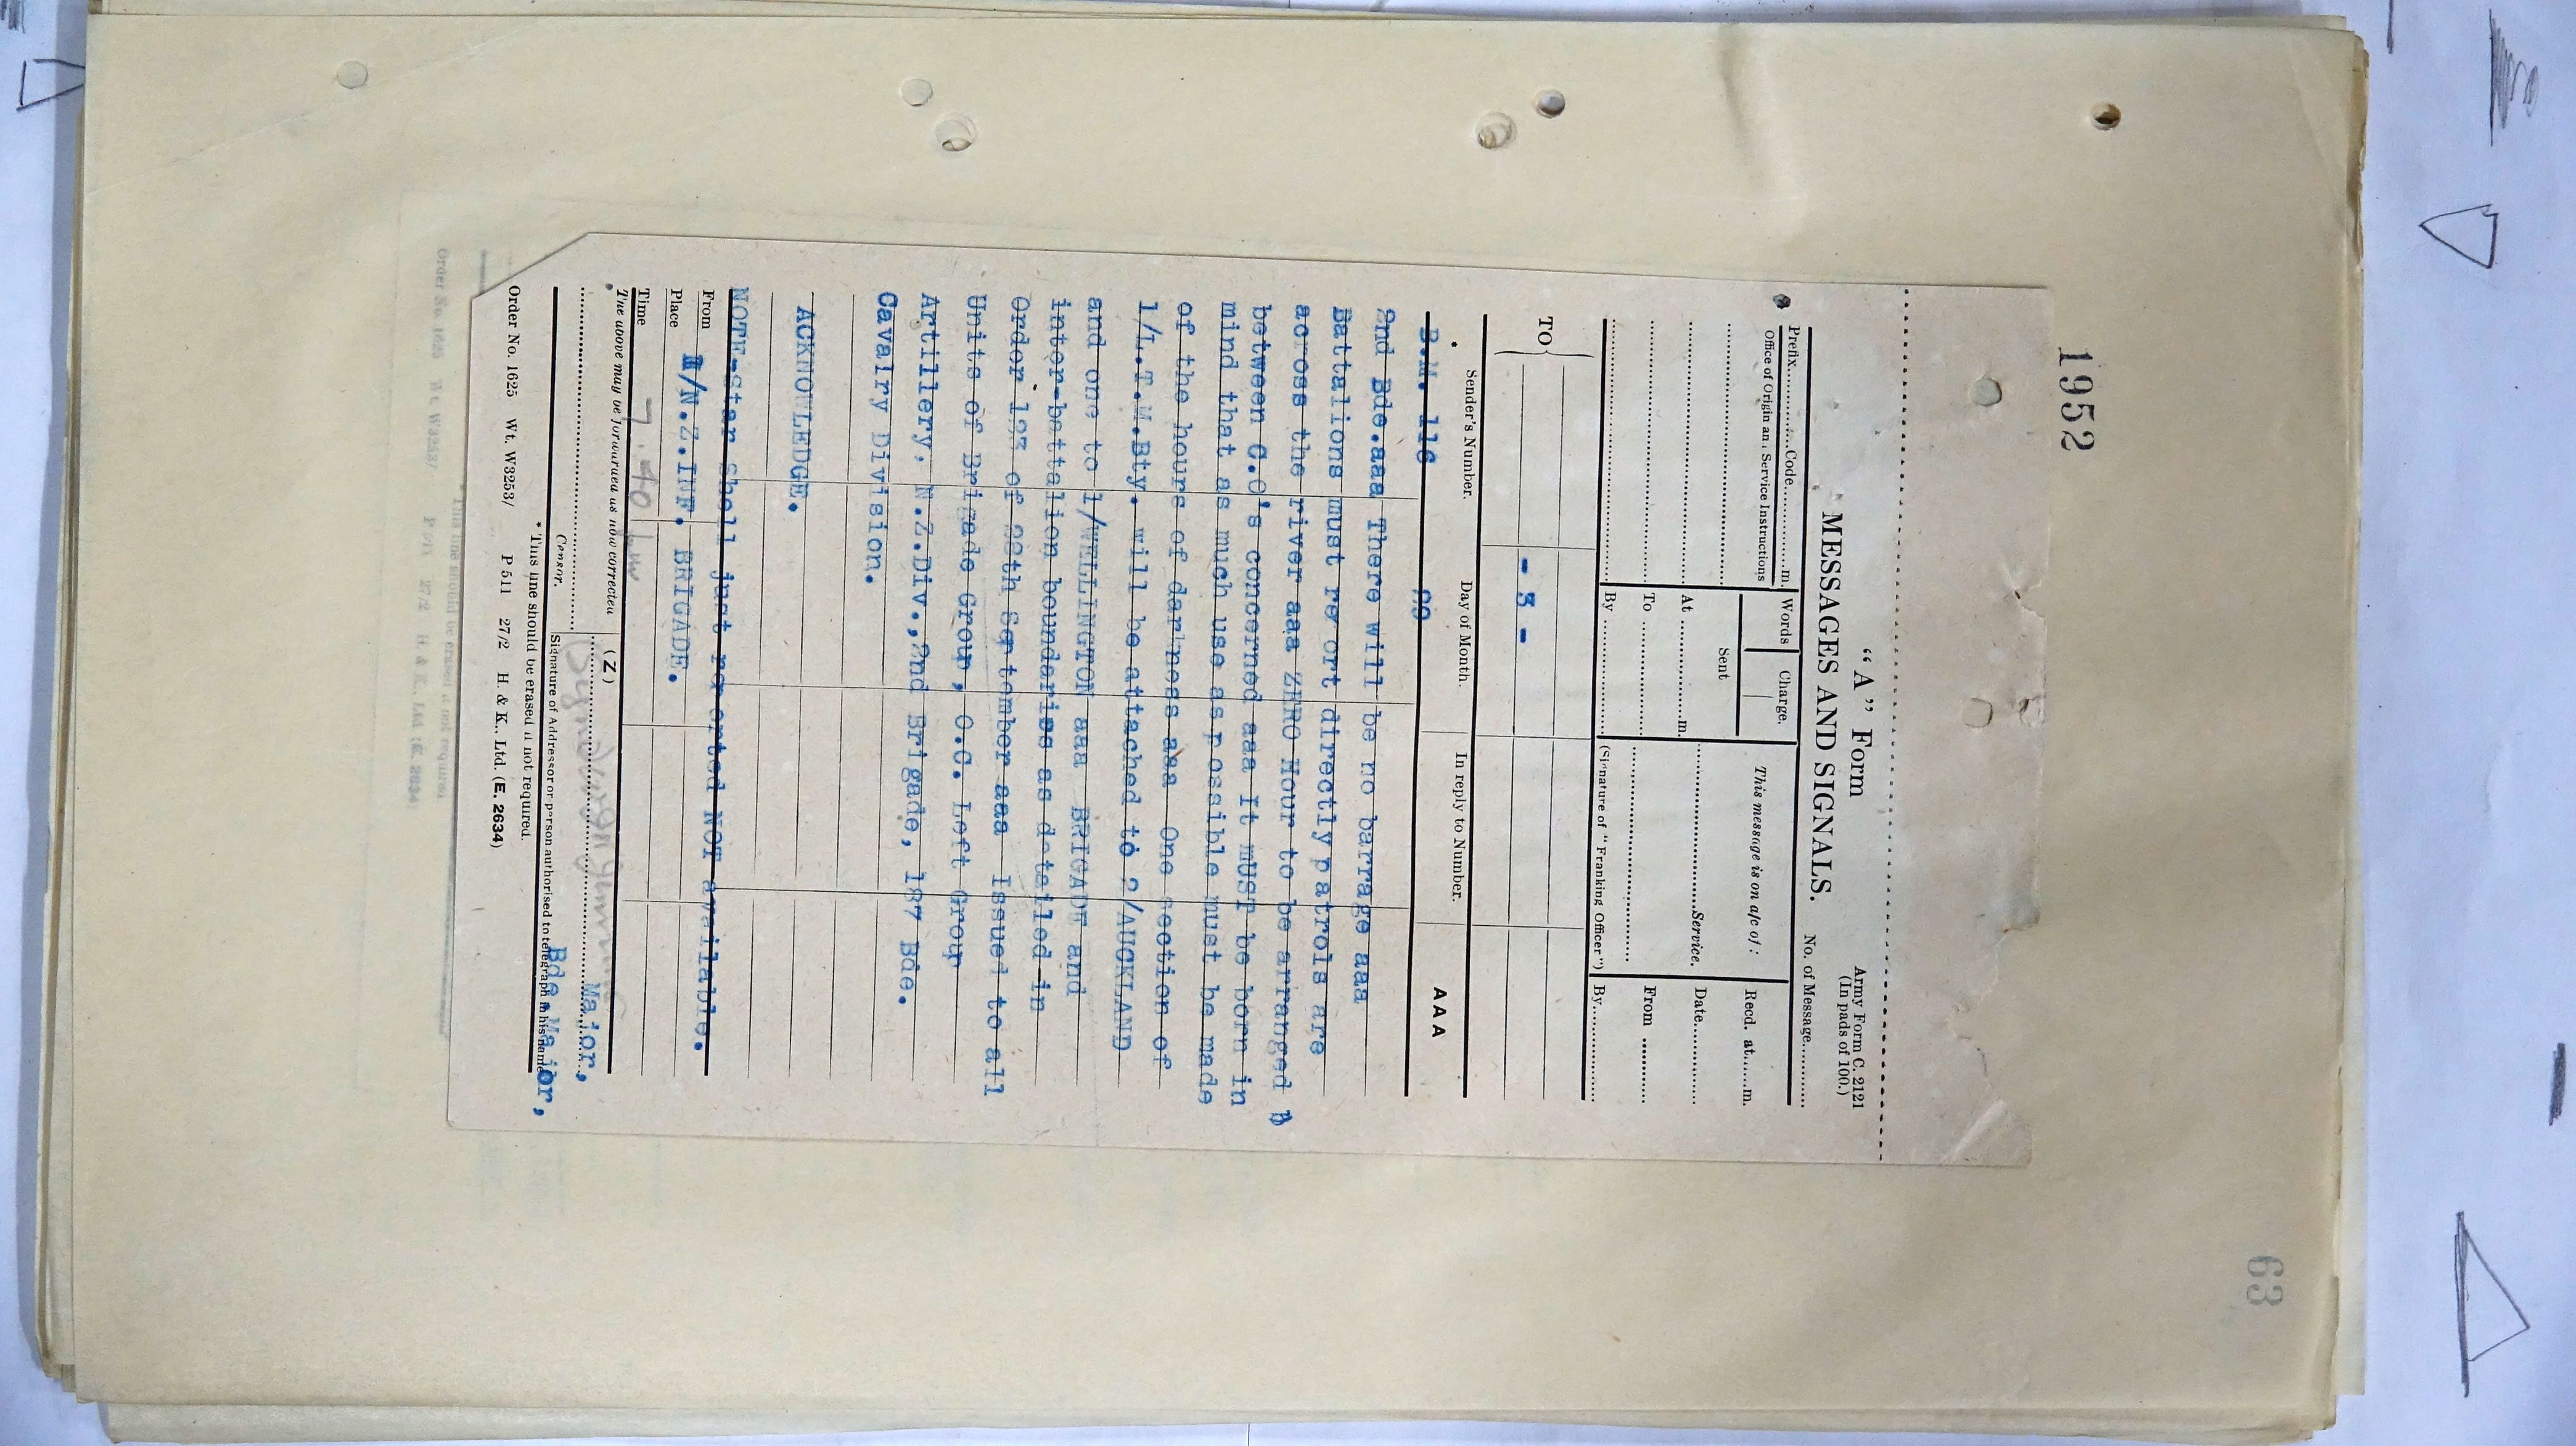 1952
63
"A" Form
Army Form C. 2121
(In pads of 100.)
MESSAGES AND SIGNALS.
No. of Message
Prefix Code m.
Words Charge.
This message is on a/c of :
Recd. at m.
Office of Origin and Service Instructions
Sent
Service.
Date
At m.
From
To
By
(Signature of "Franking Officer")
By
TO
- 3 -
Sender's Number.
Day of Month.
In reply to Number.
AAA
B.M. 116
2nd Bde.aaa There will be no barrage aaa
Battalions must report directly patrols are
across the river aaa ZERO Hour to be arranged
between C.O's concerned aaa It MUST be born in
mind that as much use as possible must be made
of the hours of darkness aaa One section of
1/L.T.M.Bty. will be attached to 2/AUCKLAND
and one to 1/WELLINGTON aaa BRIGADE and
inter-battalion boundaries as detailed in
Order of September aaa Issued to all
Units of Brigade Group, O.C. Left Group
Artillery, N.Z.Div.,2nd Brigade, Bde.
Cavalry Division.
ACKNOWLEDGE.
NOTE-Star Shell just reported NOT available.
From
Place
1/N.Z.INF. BRIGADE.
Time
7.40 pm
The above may be forwarded as now corrected
(Z)
Major,
Censor.
Signature of Addressor or person authorised to telegraph in his name
Bde.Major,
* This line should be erased if not required.
Order No. 1625 Wt. W3253/ P 511 27/2 H. & K., Ltd. (E. 2634)